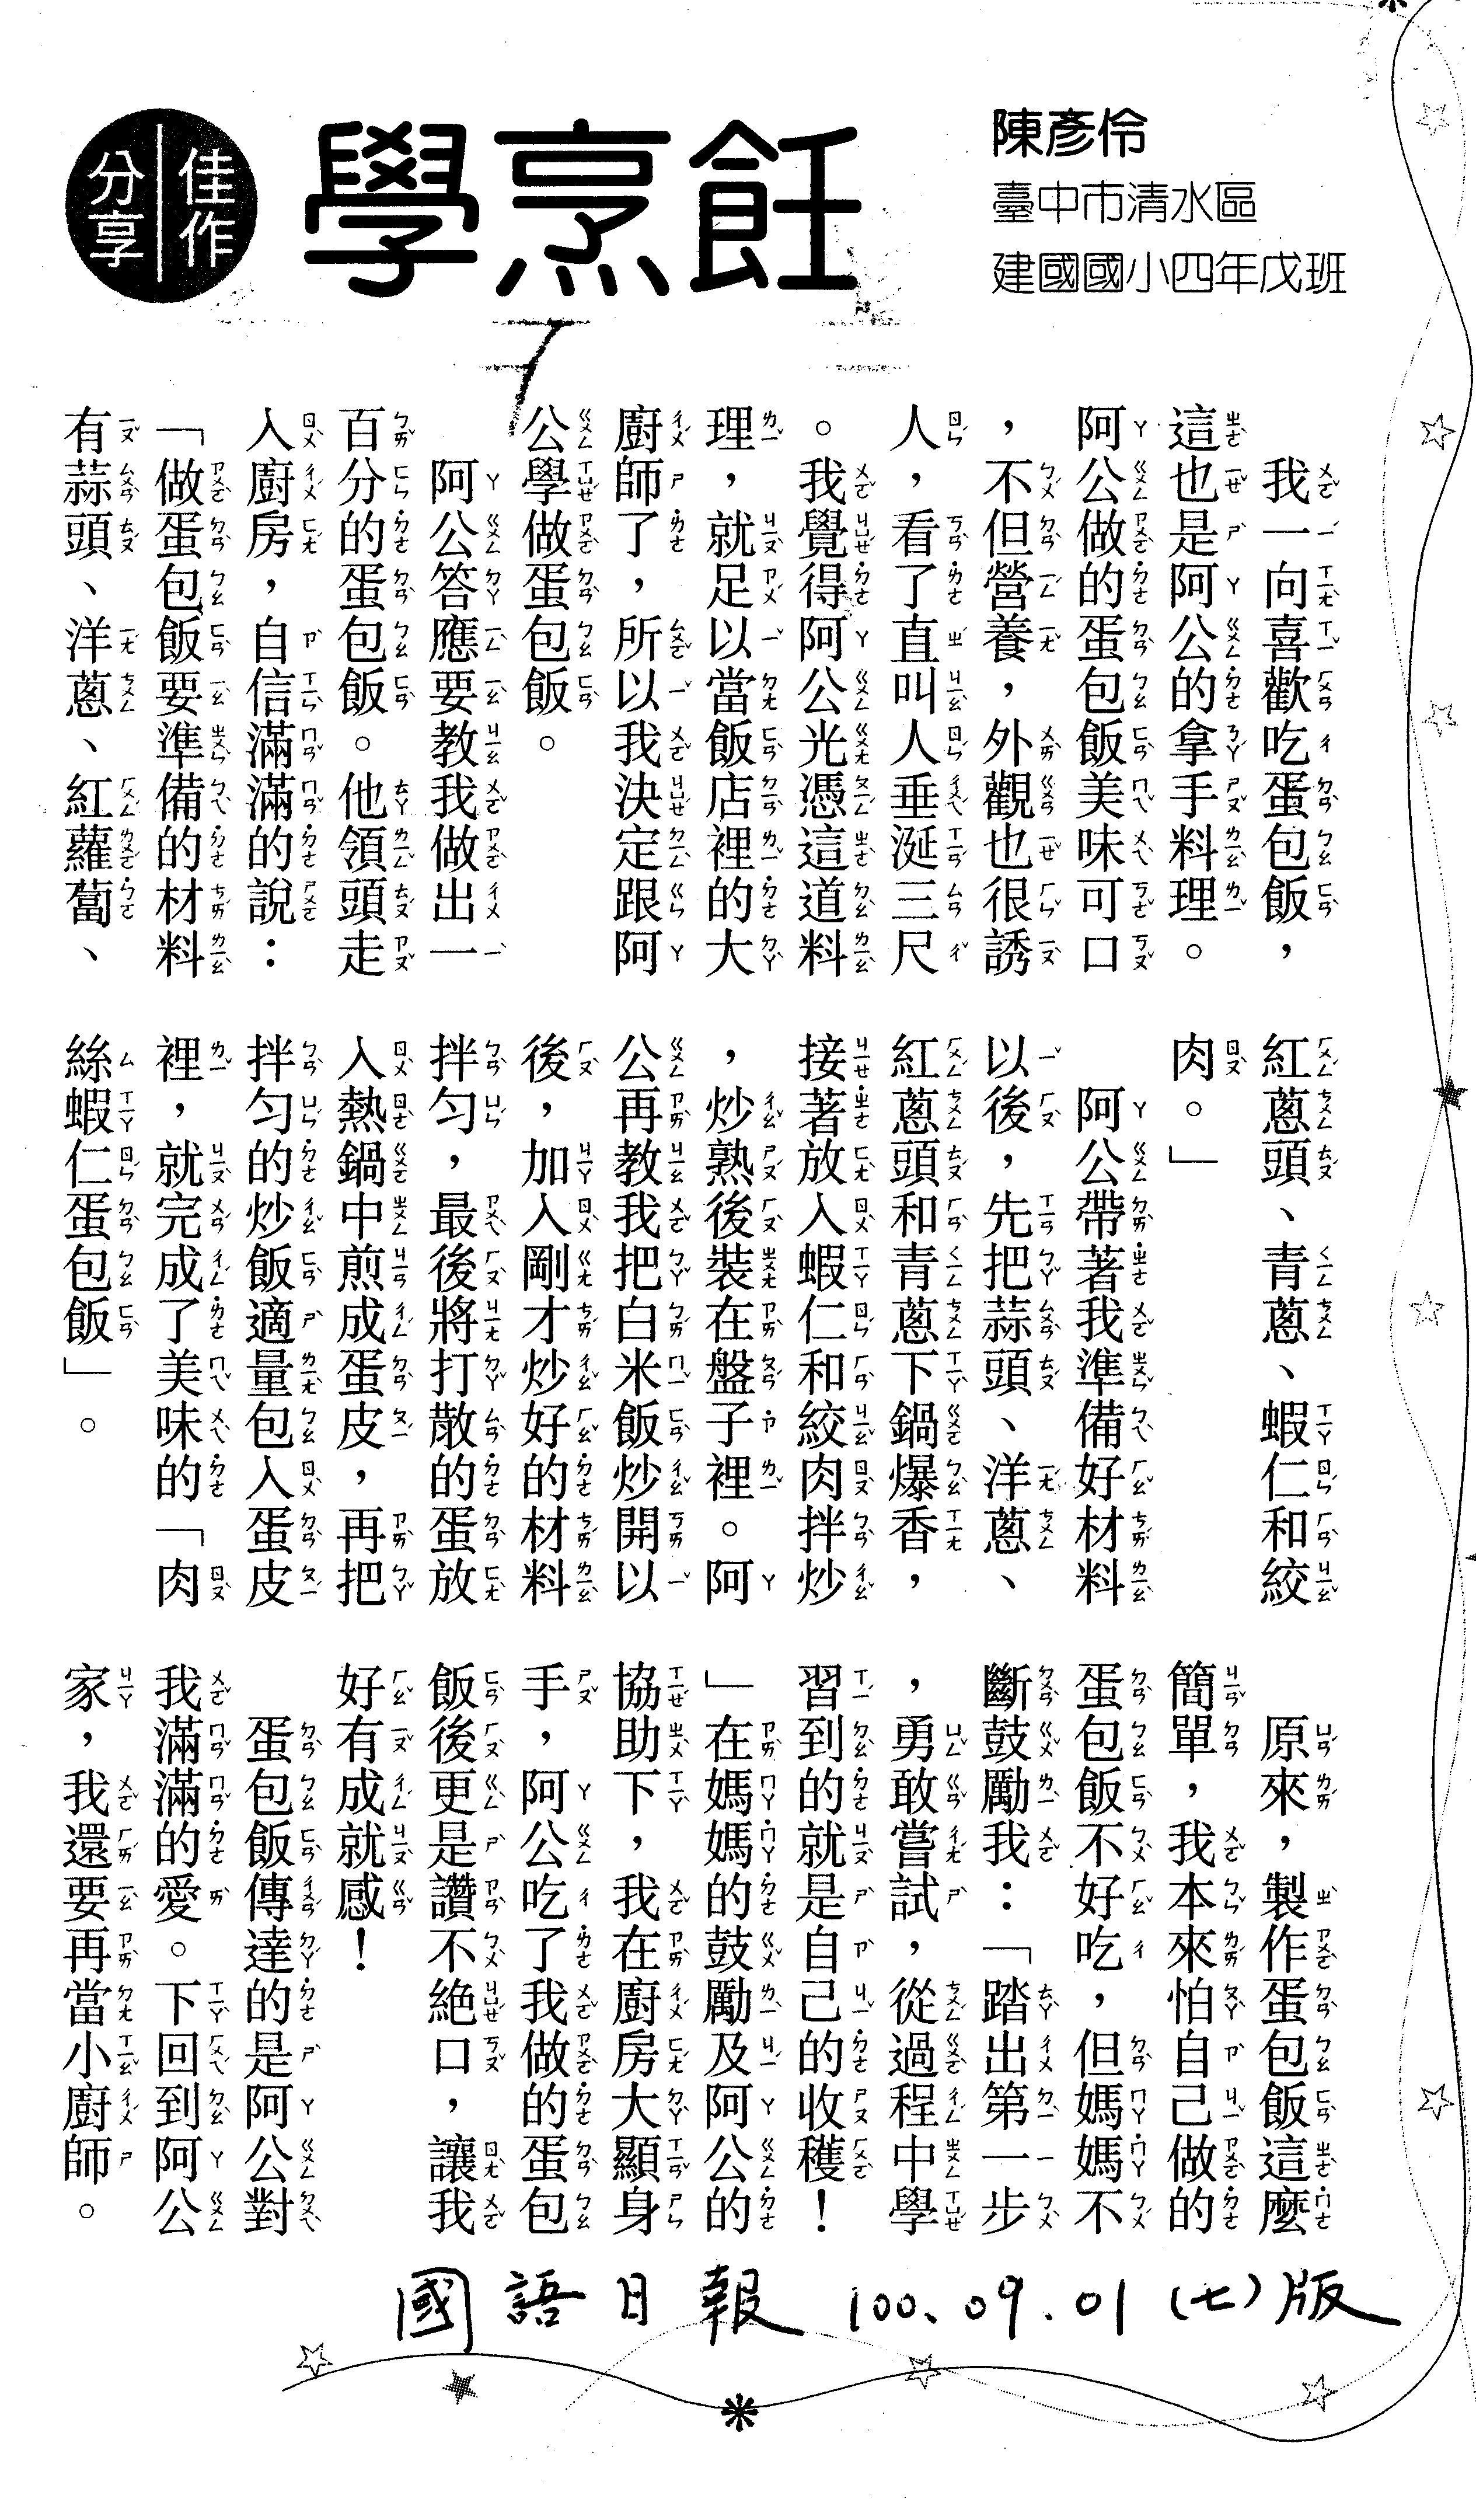 佳作
分享
學烹飪
陳彥伶
臺中市清水區
建國國小四年戊班
我一向喜歡吃蛋包飯，
這也是阿公的拿手料理。
阿公做的蛋包飯美味可口
，不但營養，外觀也很誘
人，看了直叫人垂涎三尺
。我覺得阿公光憑這道料
理，就足以當飯店裡的大
廚師了，所以我決定跟阿
公學做蛋包飯。
阿公答應要教我做出一
百分的蛋包飯。他領頭走
入廚房，自信滿滿的說：
「做蛋包飯要準備的材料
有蒜頭、洋蔥、紅蘿蔔、
紅蔥頭、青蔥、蝦仁和絞
肉。」
阿公帶著我準備好材料
以後，先把蒜頭、洋蔥、
紅蔥頭和青蔥下鍋爆香，
接著放入蝦仁和絞肉拌炒
，炒熟後裝在盤子裡。阿
公再教我把白米飯炒開以
後，加入剛才炒好的材料
拌勻，最後將打散的蛋放
入熱鍋中煎成蛋皮，再把
拌勻的炒飯適量包入蛋皮
裡，就完成了美味的「肉
絲蝦仁蛋包飯」。
原來，製作蛋包飯這麼
簡單，我本來怕自己做的
蛋包飯不好吃，但媽媽不
斷鼓勵我：「踏出第一步
，勇敢嘗試，從過程中學
習到的就是自己的收穫！
」在媽媽的鼓勵及阿公的
協助下，我在廚房大顯身
手，阿公吃了我做的蛋包
飯後更是讚不絕口，讓我
好有成就感！
蛋包飯傳達的是阿公對
我滿滿的愛。下回到阿公
家，我還要再當小廚師。
國語日報 100.09.01（七）版